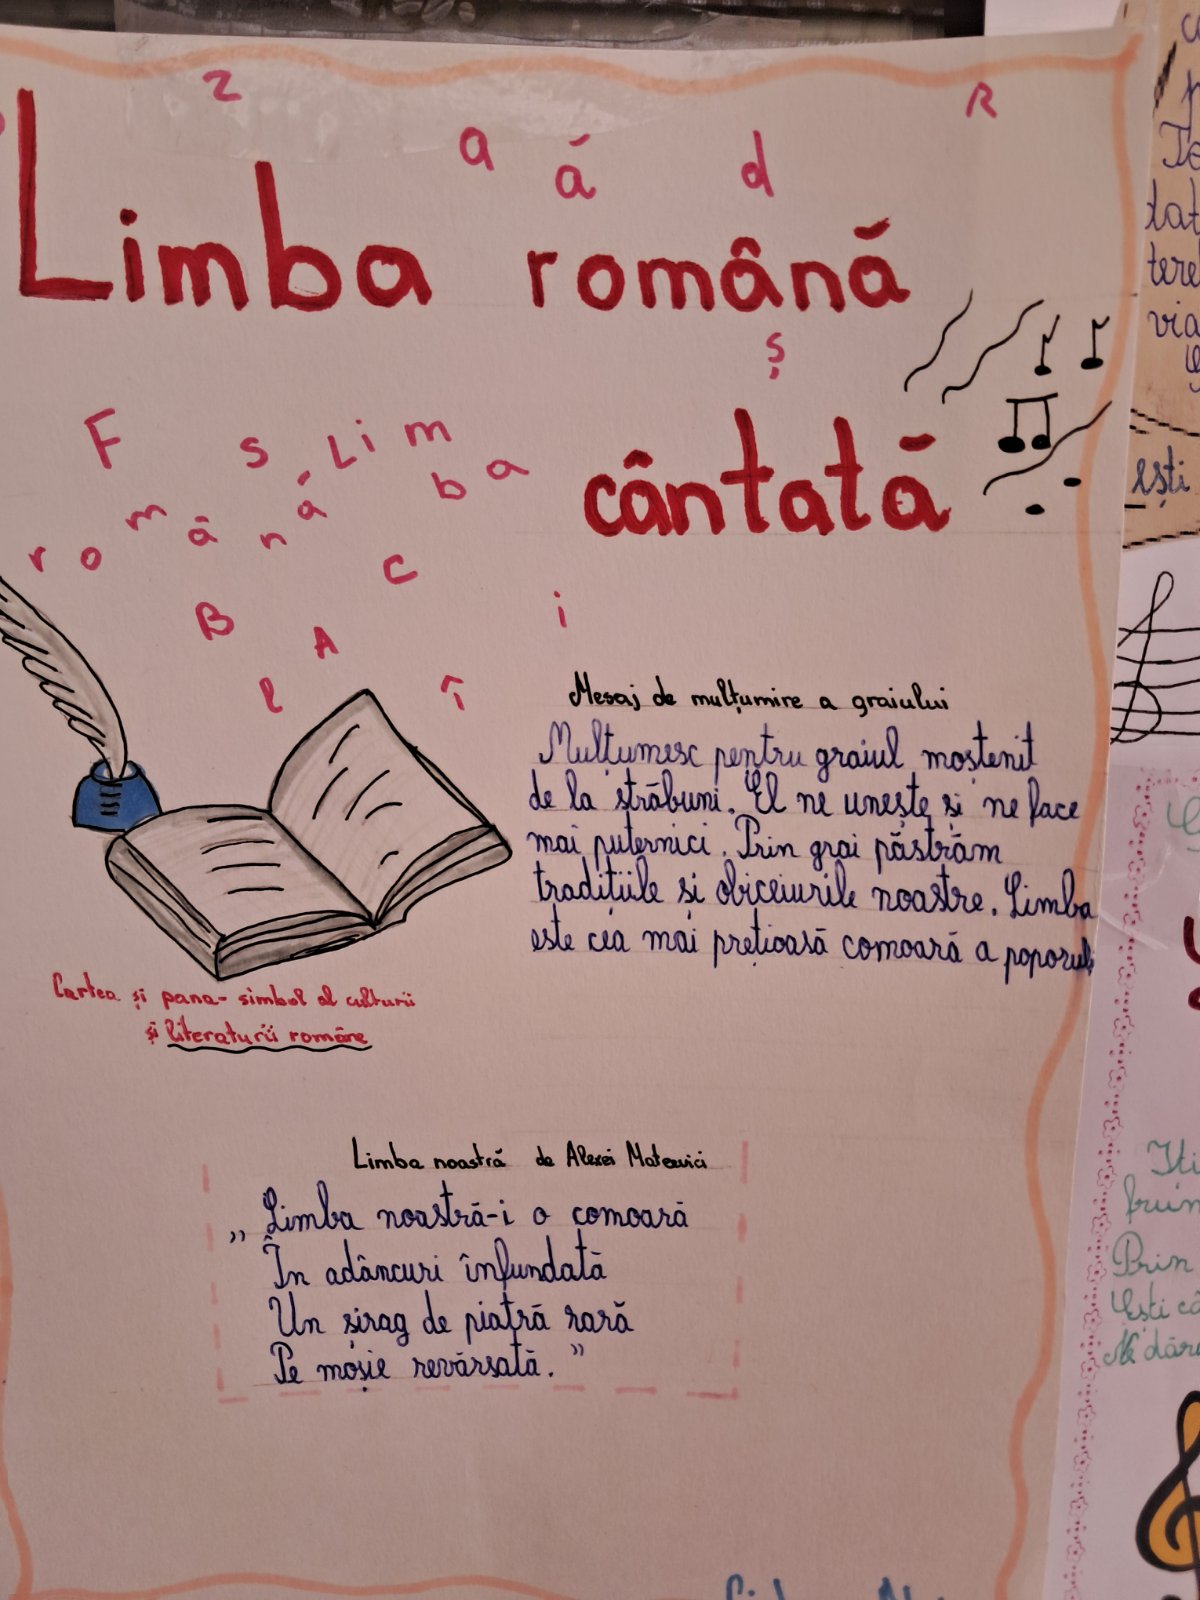 z
R
a
ă
d
Limba română
ș
F
s
Limba
cântată
română
C
B
A
i
l
Î
Mesaj de mulțumire a graiului
Mulțumesc pentru graiul moștenit
de la străbuni. El ne unește și ne face
mai puternici. Prin grai păstrăm
tradițiile și obiceiurile noastre. Limba
este cea mai prețioasă comoară a poporului
Cartea și pana- simbol al culturii
și literaturii române
Limba noastră de Alexei Mateevici
„Limba noastră-i o comoară
În adâncuri înfundată
Un șirag de piatră rară
Pe moșie revărsată.”
ești
Prin
Ești